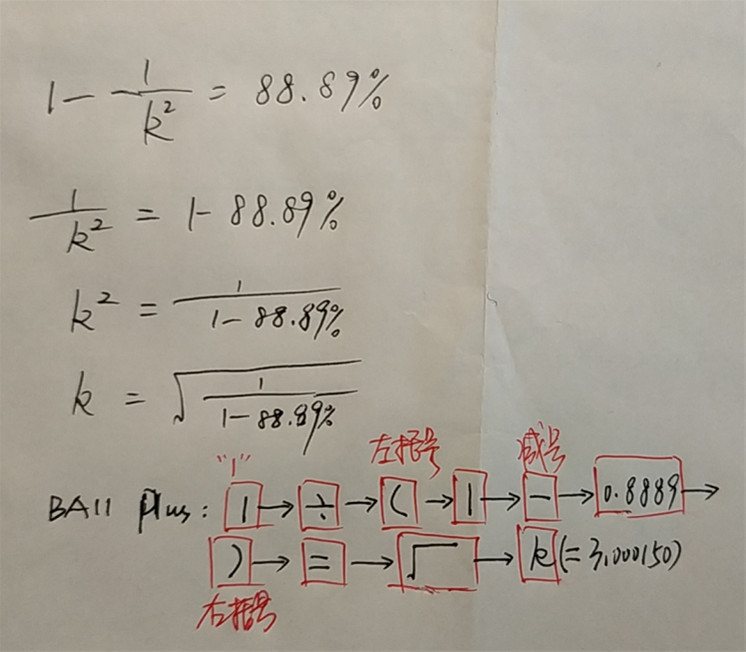 1 - 1/k² = 88.89%
1/k² = 1 - 88.89%
k² = 1/(1 - 88.89%)
k = √(1/(1 - 88.89%))
"1" 左括号 减号
BAII plus: 1 → ÷ → ( → 1 → - → 0.8889 →
) → = → √ → k (= 3.000150)
右括号